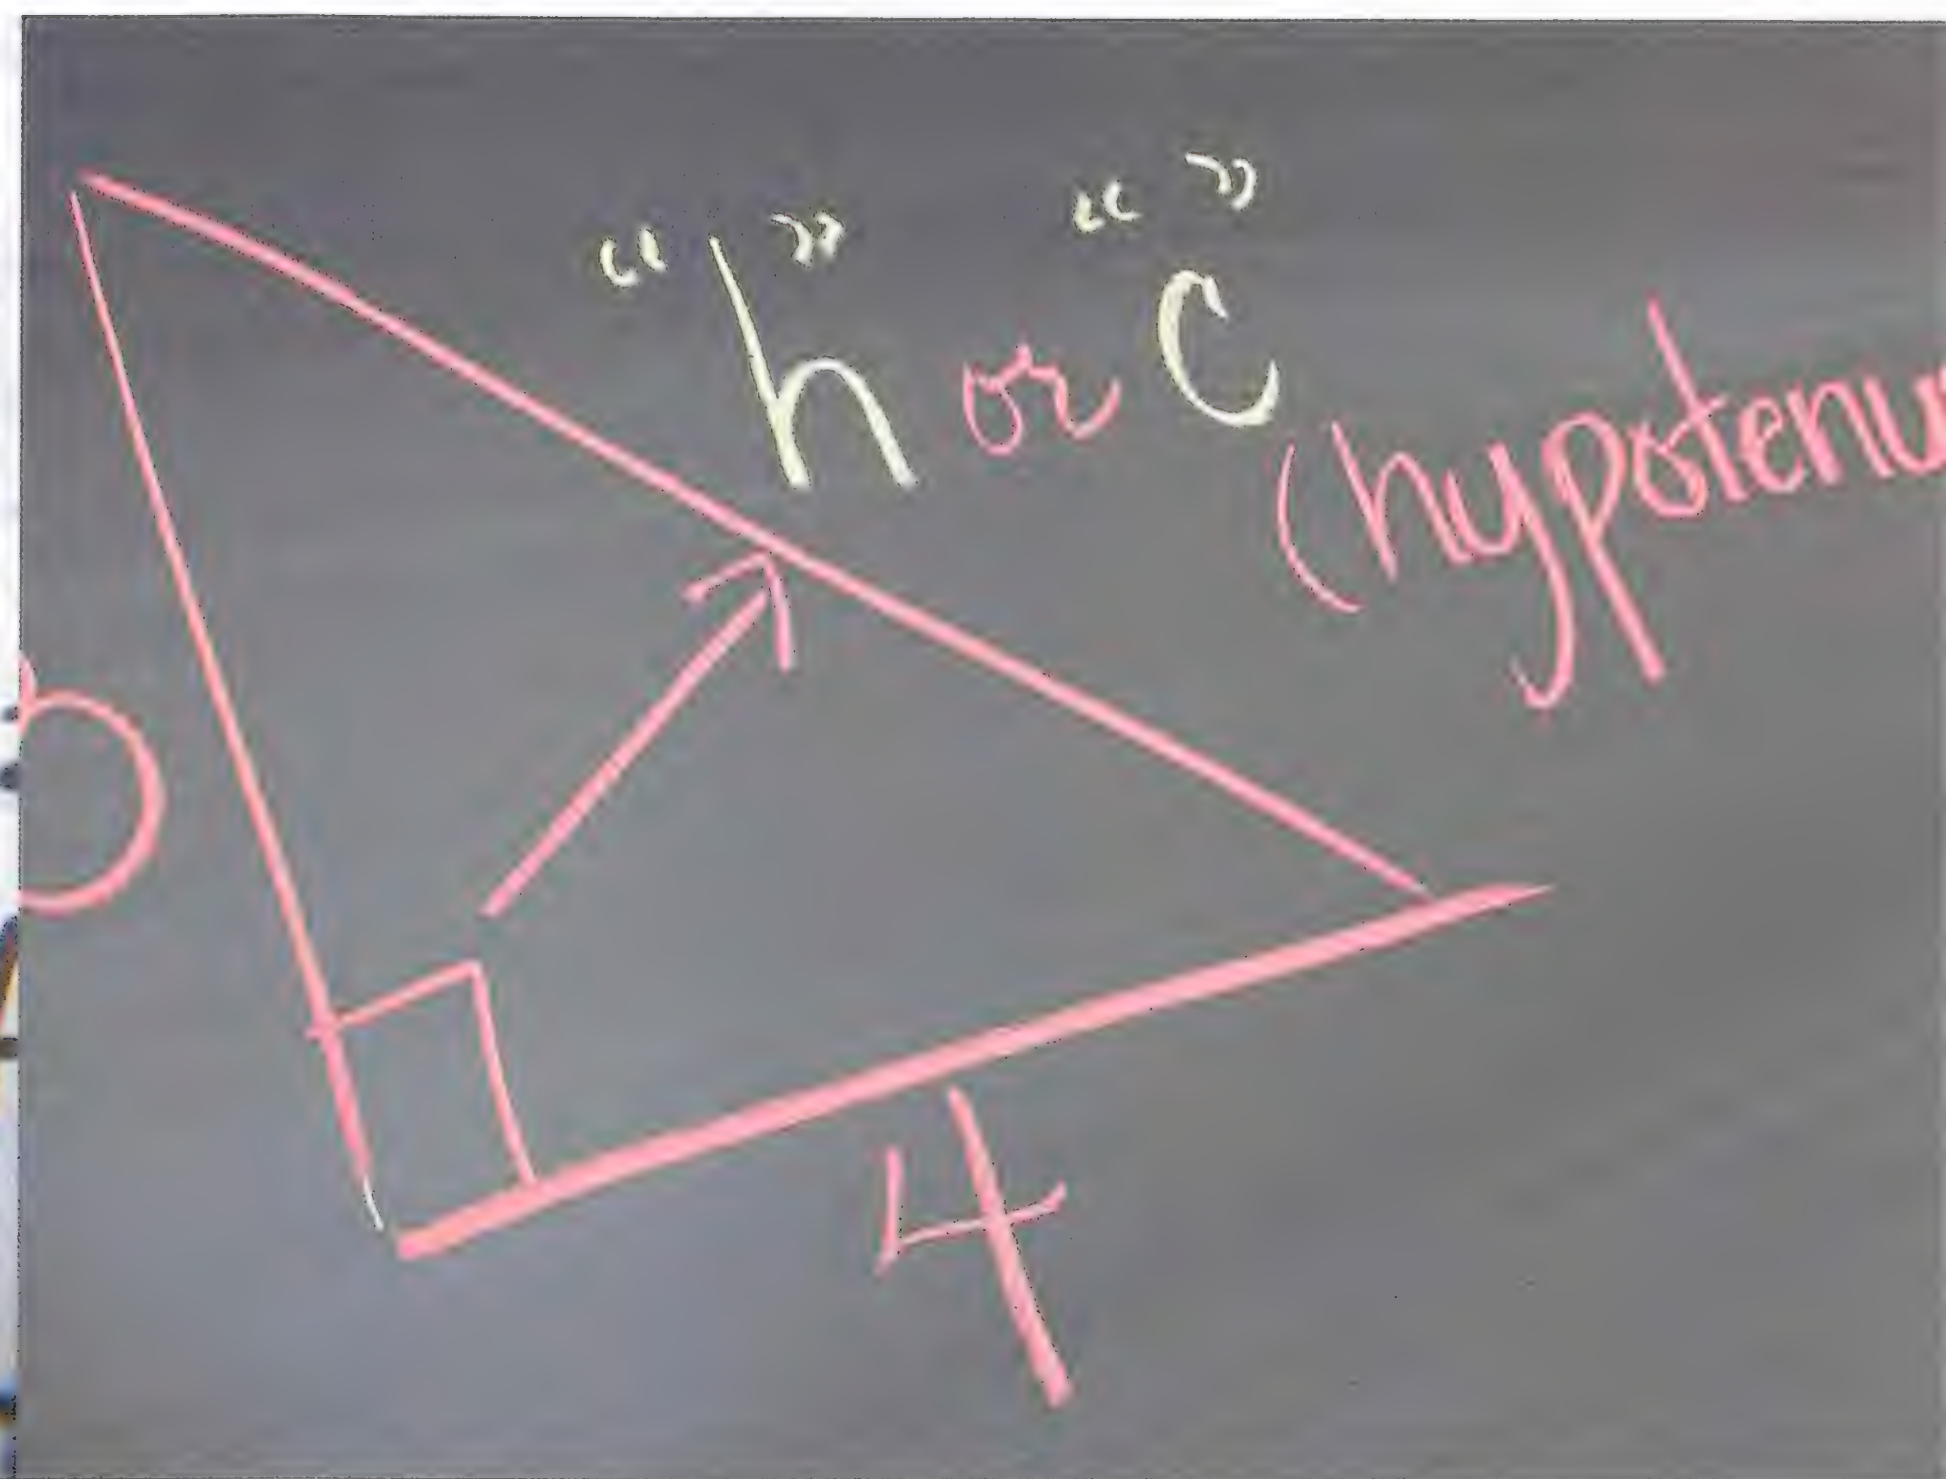 "h" or "c"
(hypotenu
4